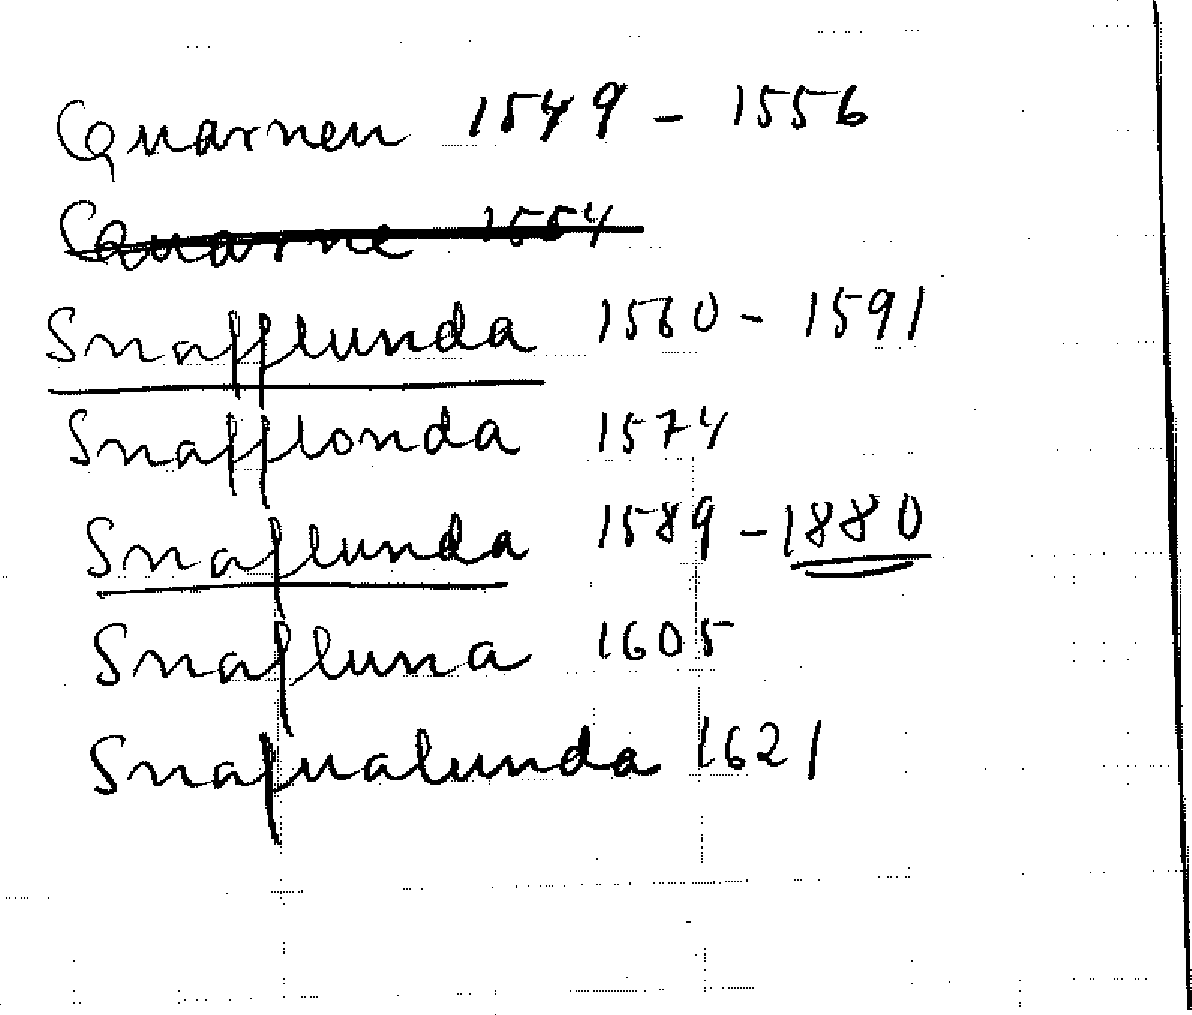 Quarnen 1549 - 1556
Quarne 1554
Snafflunda 1560 - 1591
Snafflonda 1574
Snaflunda 1589 - 1880
Snafluna 1605
Snafualunda 1621